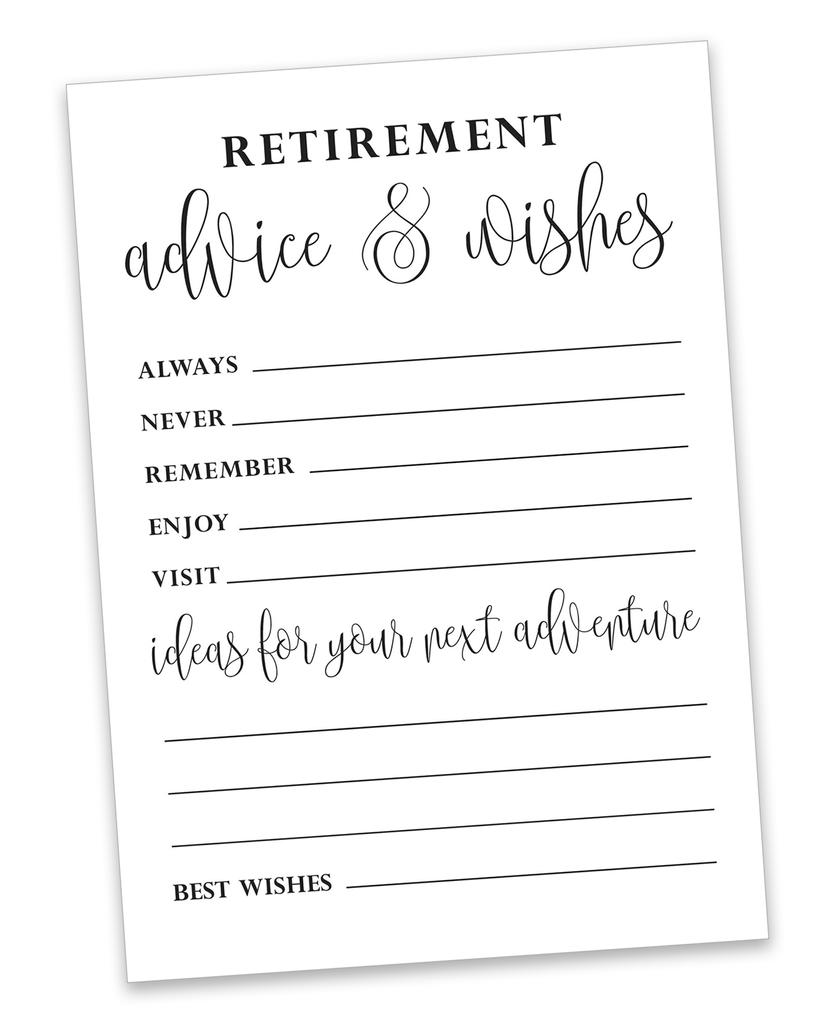 RETIREMENT
advice & wishes
ALWAYS
NEVER
REMEMBER
ENJOY
VISIT
ideas for your next adventure
BEST WISHES